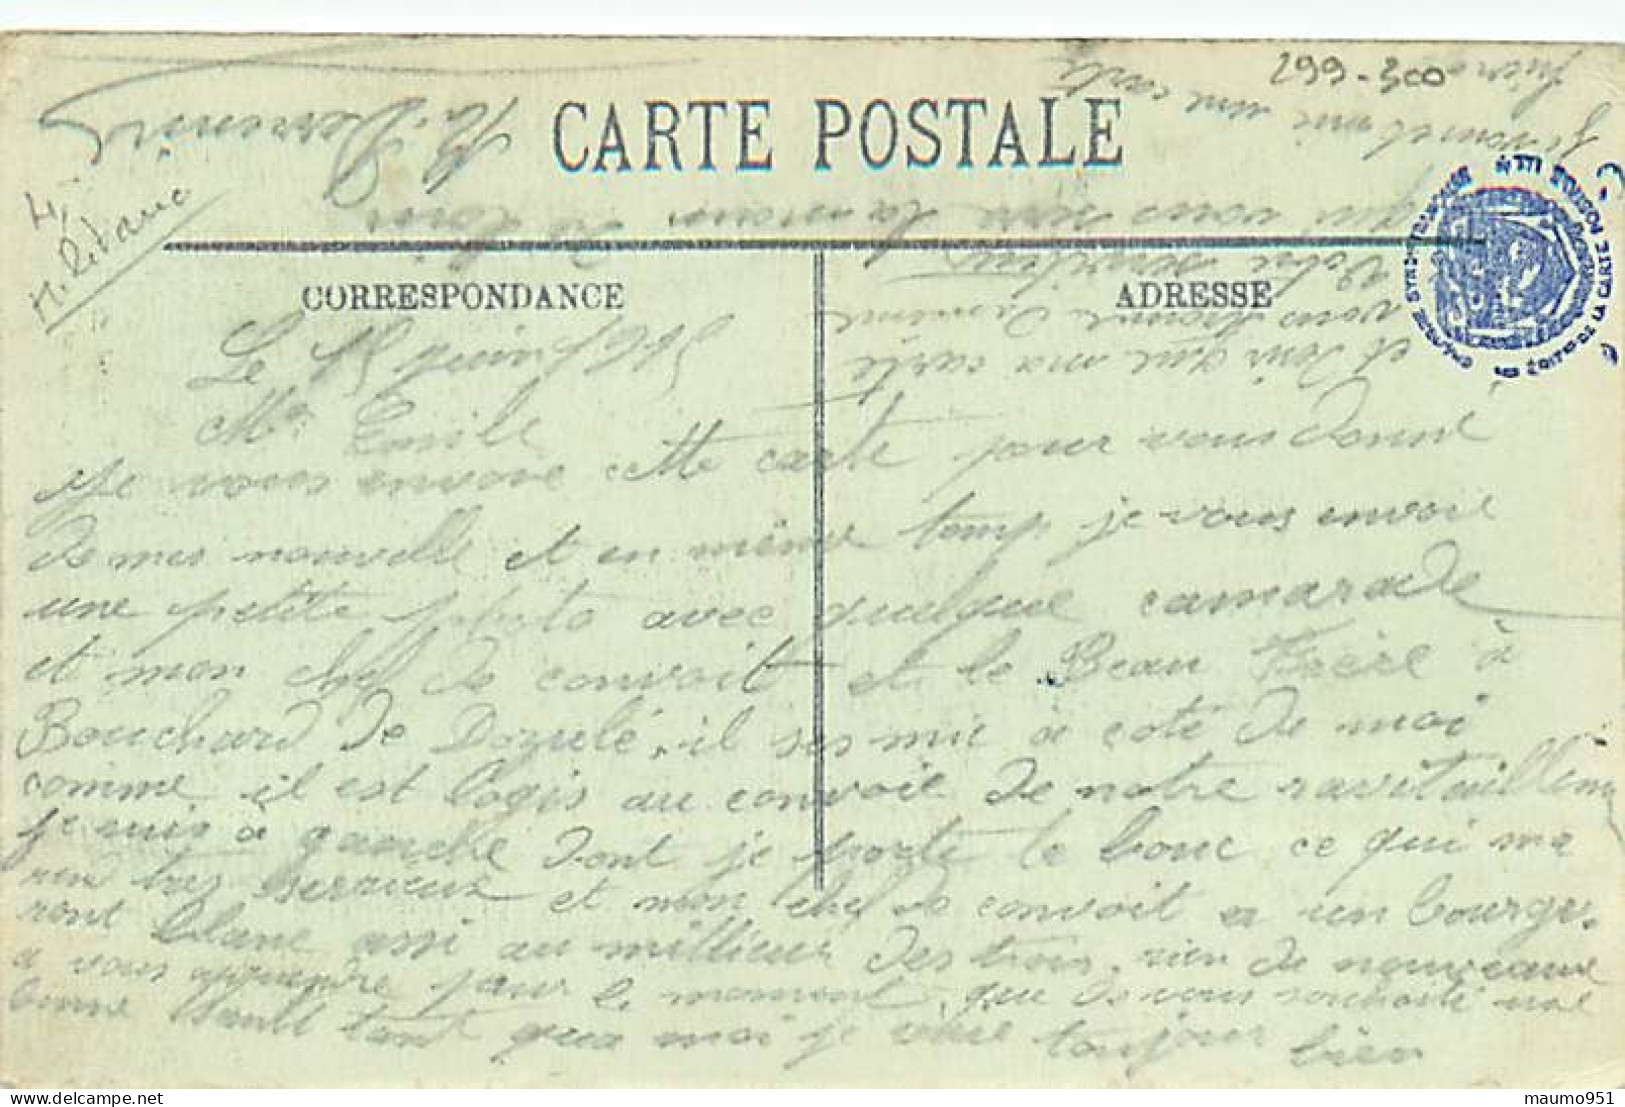 299-300
CARTE POSTALE
CORRESPONDANCE
ADRESSE
Le 15 juin 1915
Mr Emile
Je vous envoie cette carte pour vous donné
de mes nouvelle et en même temp je vous envoie
une petite photo avec quelque camarade
et mon chef de convoit et le Beau Frère à
Bouchard de Dozulé, il ses mie a coté de moi
comme il est logis au convoie de notre ravitaillem
je suis a gauche dont je porte le bouc ce qui me
ren tres serrieux et mon chef de convoit a un bourge
ront blanc assi au millieux des trois, rien de nouveaux
a vous apprendre pour le moment que de vous souhaité une
bonne santé tant qua moi je vais toujour bien
et dir que ma carte
vous trouve de meme
Votre serviteur
qui vous sera la main de loin
maumo951